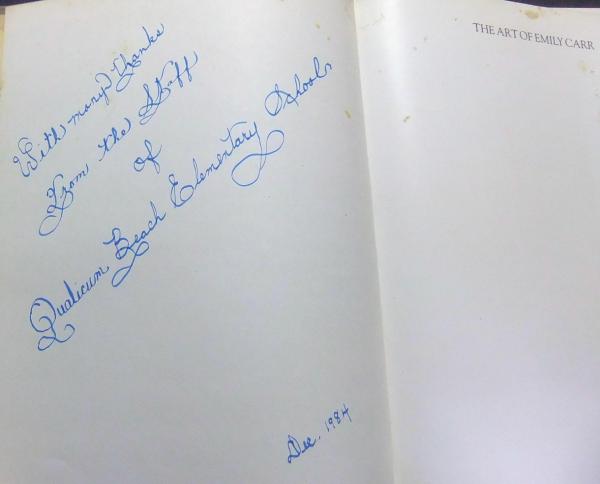 With many thanks
From the Staff
of
Qualicum Beach Elementary School
Dec. 1984
THE ART OF EMILY CARR